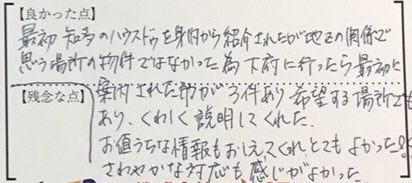 【良かった点】
最初 知多のハウスドゥを身内から紹介されたが地区の関係で
思う場所の物件ではなかった為 大府に行ったら最初に
【残念な点】
案内された物が3件あり 希望する場所でも
あり、くわしく説明してくれた。
お値うちな情報もおしえてくれとてもよかった!!
さわやかな対応も感じがよかった。